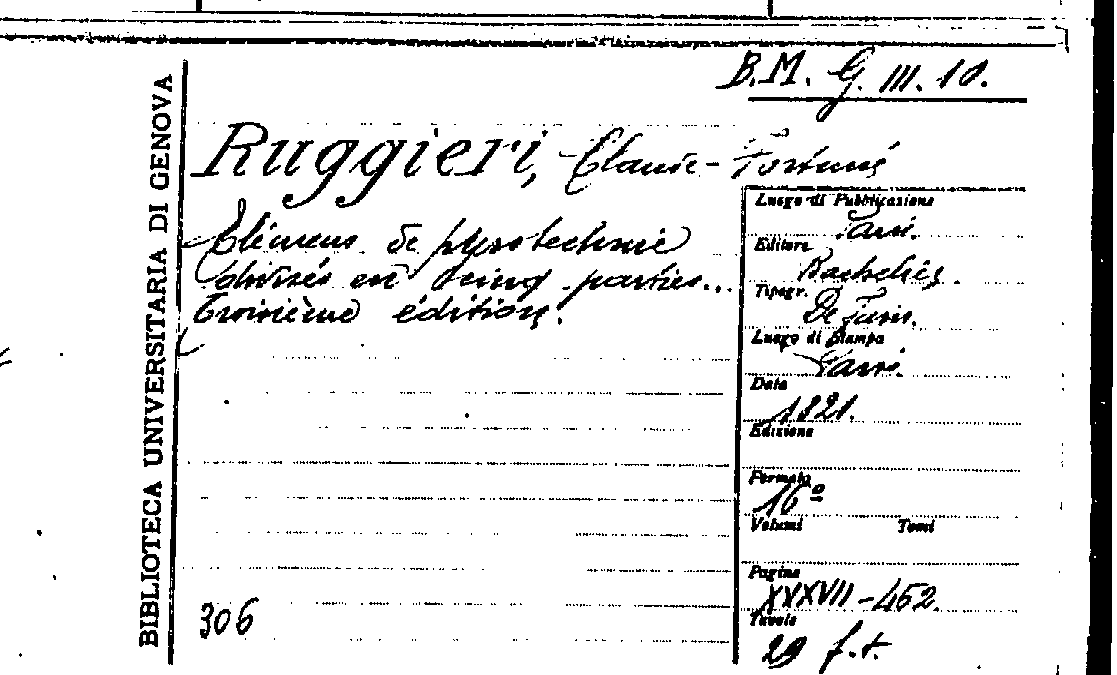 B.M. G. III. 10.
BIBLIOTECA UNIVERSITARIA DI GENOVA
Ruggieri, Claude-Fortuné
Élémens de pyrotechnie
divisés en cinq parties...
Troisième édition.
Luogo di Pubblicazione
Paris.
Editore
Bachelier.
Tipogr.
De Fain.
Luogo di Stampa
Paris.
Data
1821.
Edizione
Formato
16º
Volumi Tomi
Pagine
XXXVII-452
Tavole
29 f.t.
306